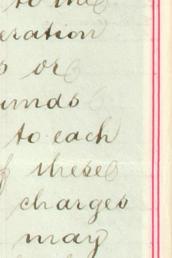 to the
eration
s or
unds
to each
f these
charges
may